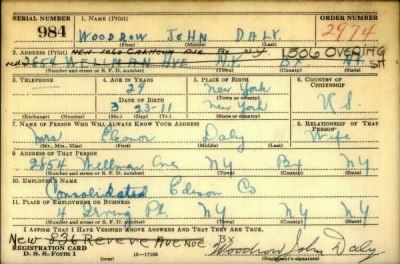 SERIAL NUMBER 1. NAME (Print) ORDER NUMBER
984 WOODROW JOHN DALY 2974
(First) (Middle) (Last)
2. ADDRESS (Print) NEW 1060 CALHOUN AVE BX N.Y. 1306 OVERING ST
2654 WELLMAN AVE N.Y. BX N.Y.
(Number and street or R. F. D. number) (Town) (County) (State)
3. TELEPHONE 4. AGE IN YEARS 5. PLACE OF BIRTH 6. COUNTRY OF CITIZENSHIP
29 New York
DATE OF BIRTH (Town or county)
3 23-11 New York U.S.
(Exchange) (Number) (Mo.) (Day) (Yr.) (State or country)
7. NAME OF PERSON WHO WILL ALWAYS KNOW YOUR ADDRESS 8. RELATIONSHIP OF THAT PERSON
Mrs Eleanor Daly Wife
(Mr., Mrs., Miss) (First) (Middle) (Last)
9. ADDRESS OF THAT PERSON
2654 Wellman Ave NY Bx NY
(Number and street or R. F. D. number) (Town) (County) (State)
10. EMPLOYER'S NAME
Consolidated Edison Co
11. PLACE OF EMPLOYMENT OR BUSINESS
4 Irving Pl NY NY NY
(Number and street or R. F. D. number) (Town) (County) (State)
I AFFIRM THAT I HAVE VERIFIED ABOVE ANSWERS AND THAT THEY ARE TRUE.
New 836 REVERE AVENUE BX
REGISTRATION CARD Woodrow John Daly
D. S. S. Form 1 (over) 16—17105 (Registrant's signature)